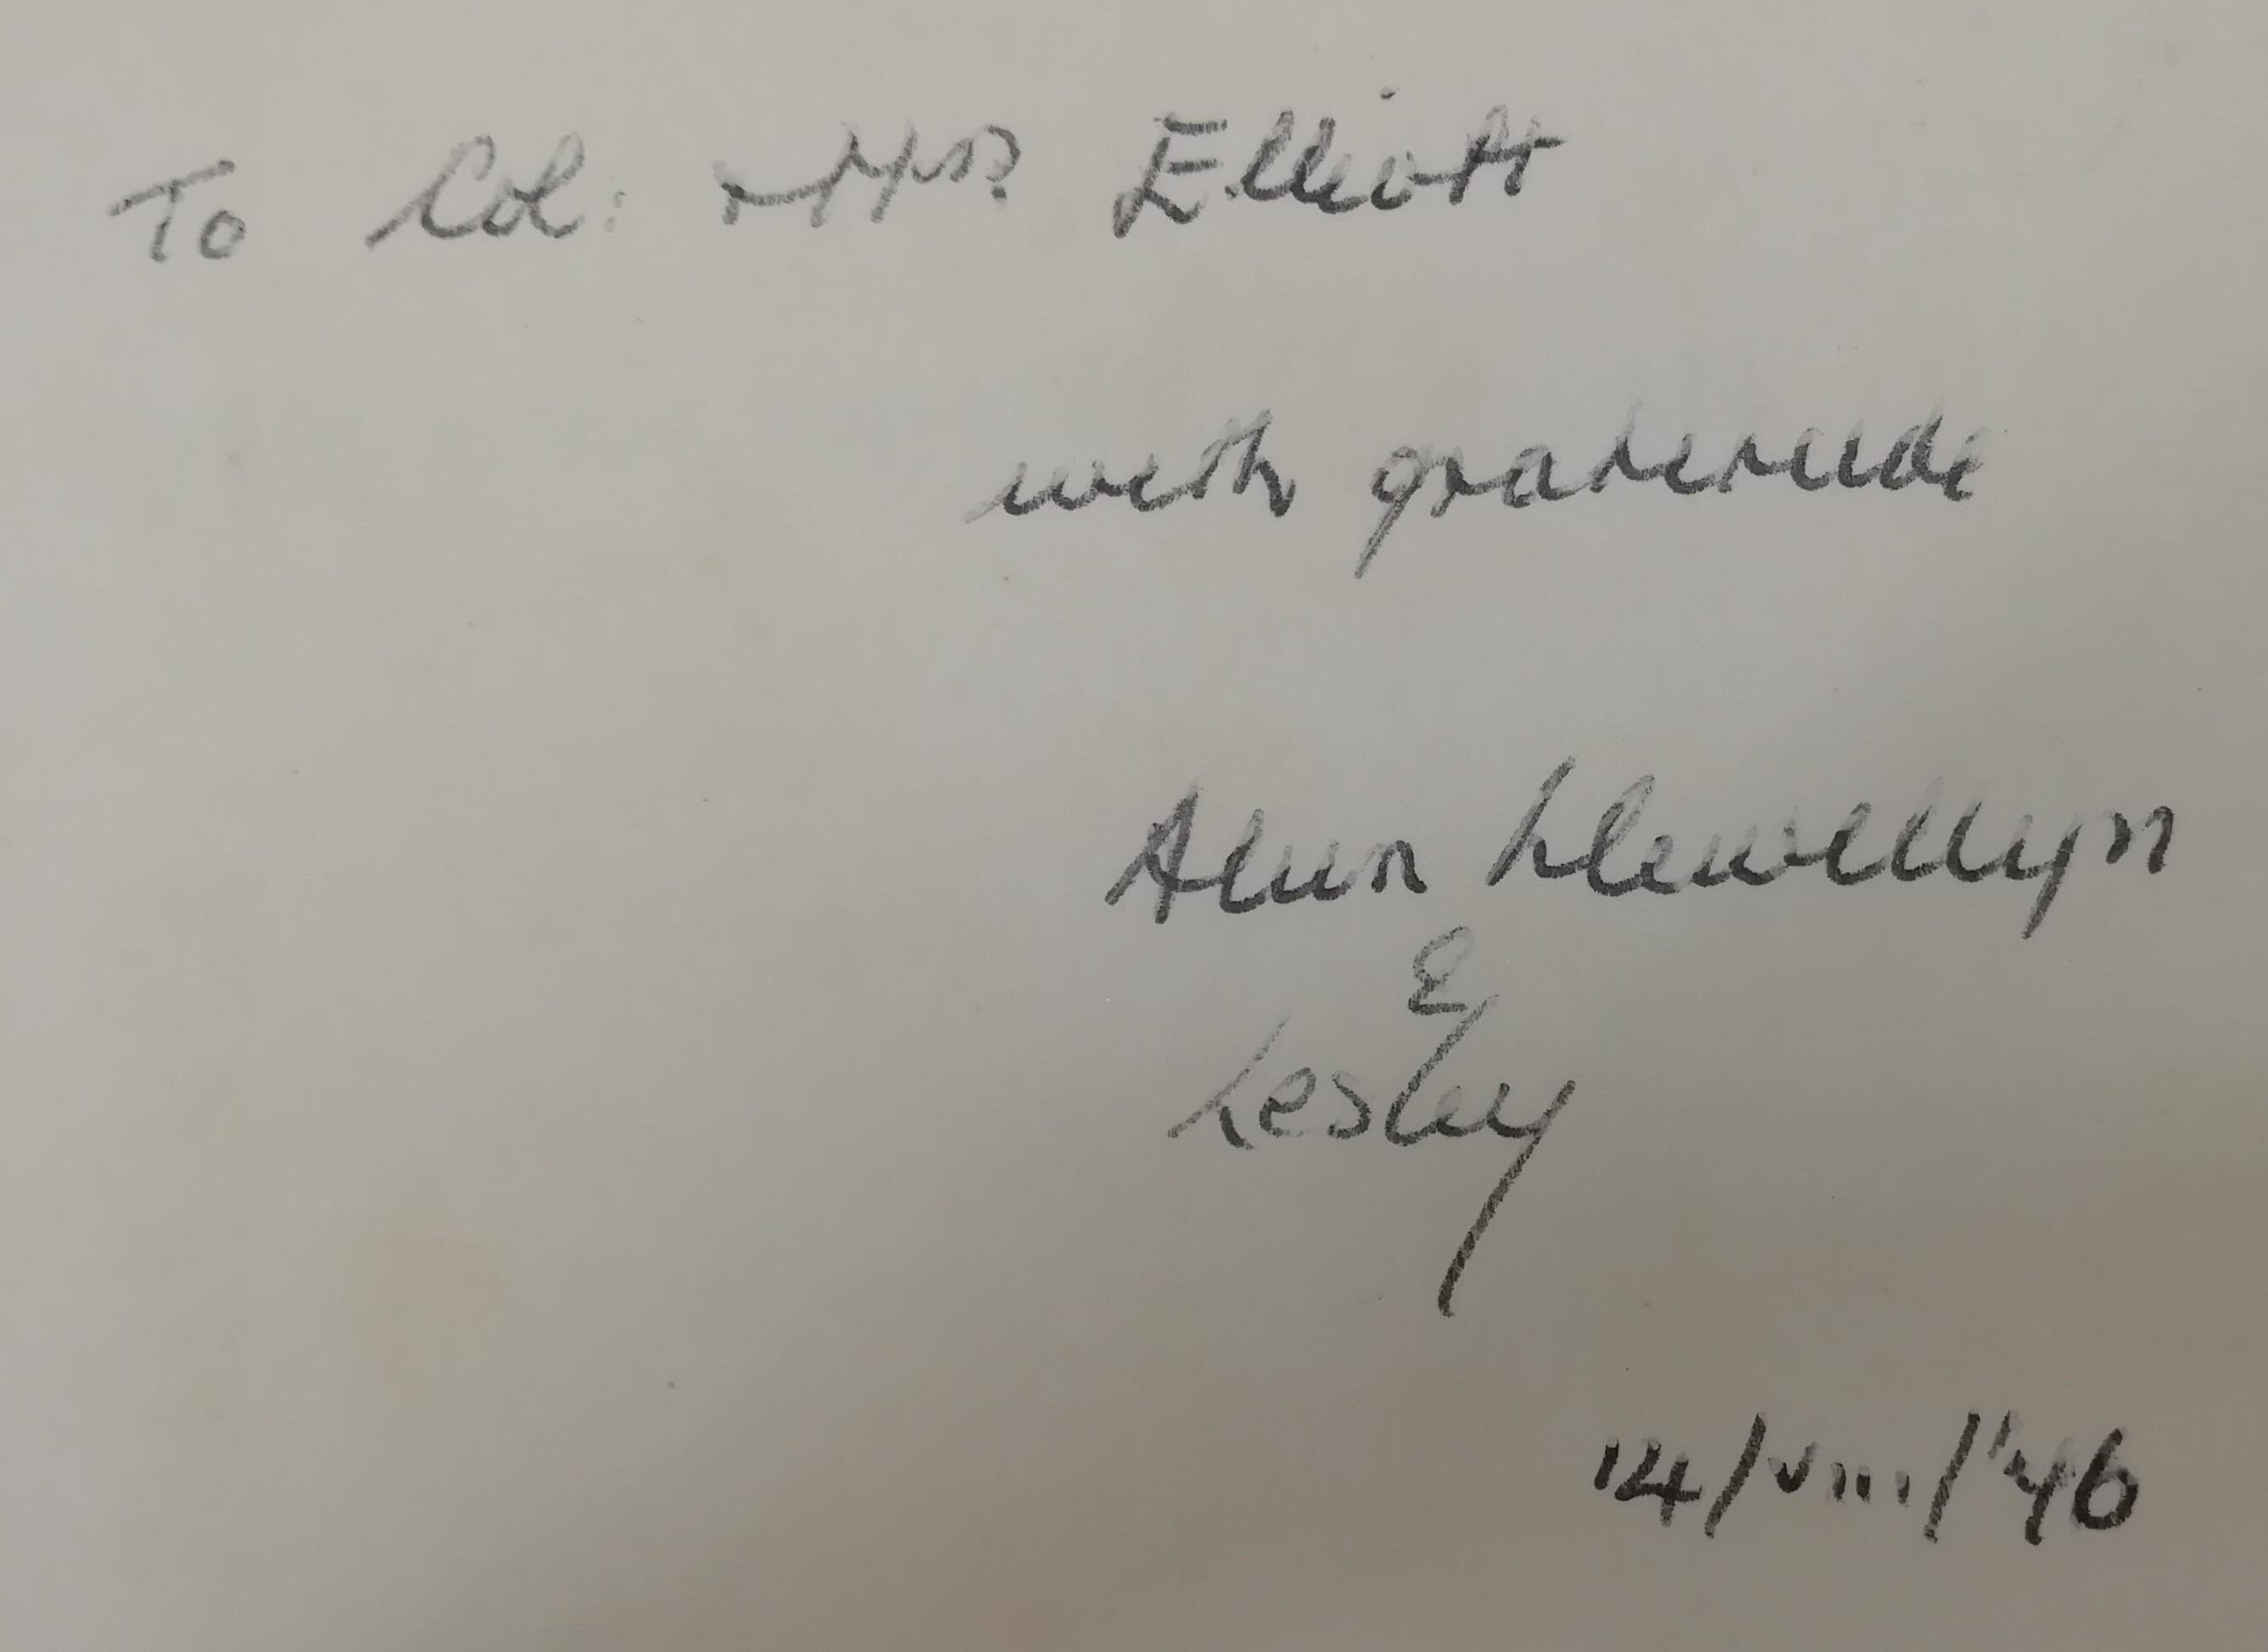 To Col: & Mrs Elliott
with gratitude
Alun Llewellyn
&
Lesley
14/VIII/'46